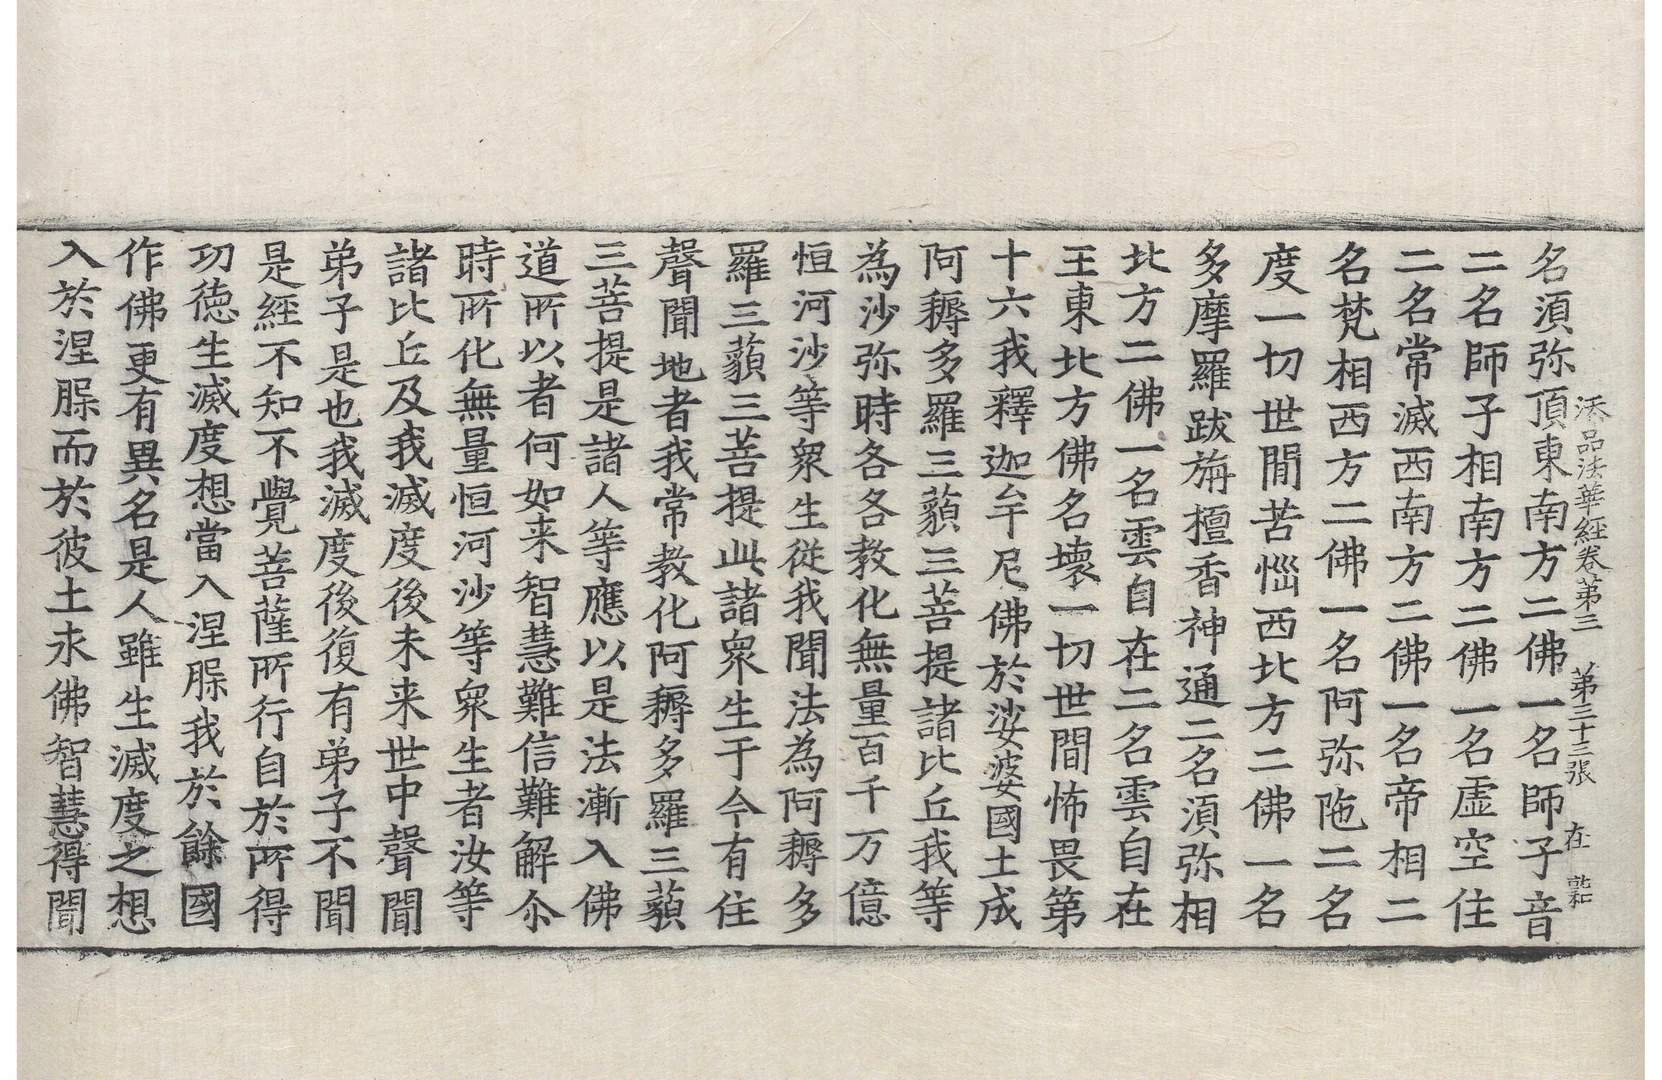 添品法華經卷第三 第三十三張 在
名湏弥頂東南方二佛一名師子音
二名師子相南方二佛一名虛空住
二名常滅西南方二佛一名帝相二
名梵相西方二佛一名阿弥陁二名
度一切世間苦惱西北方二佛一名
多摩羅跋旃檀香神通二名湏弥相
北方二佛一名雲自在二名雲自在
王東北方佛名壞一切世間怖畏第
十六我釋迦牟尼佛於娑婆國土成
阿耨多羅三藐三菩提諸比丘我等
為沙弥時各各教化無量百千万億
恒河沙等衆生從我聞法為阿耨多
羅三藐三菩提此諸衆生于今有住
聲聞地者我常教化阿耨多羅三藐
三菩提是諸人等應以是法漸入佛
道所以者何如来智慧難信難解尒
時所化無量恒河沙等衆生者汝等
諸比丘及我滅度後未来世中聲聞
弟子是也我滅度後復有弟子不聞
是經不知不覺菩薩所行自於所得
功德生滅度想當入涅槃我於餘國
作佛更有異名是人雖生滅度之想
入於涅槃而於彼土求佛智慧得聞